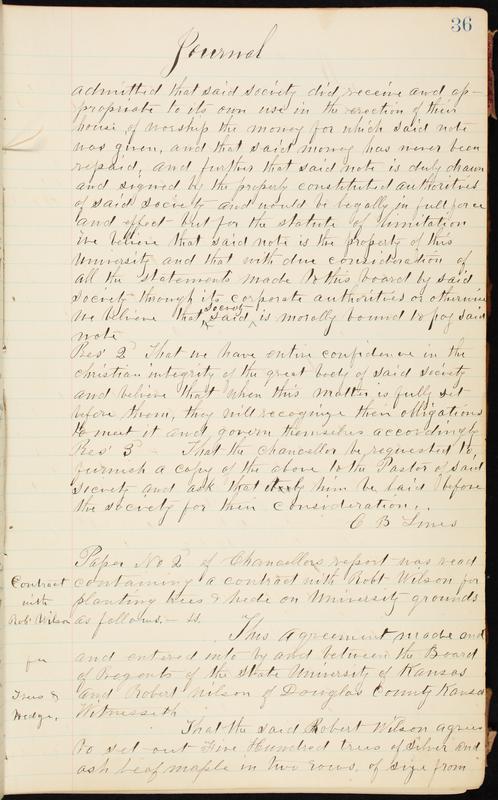 36
Journal
admitted that said society did receive and ap-
propriate to its own use in the erection of their
house of worship the money for which said note
was given, and that said money has never been
repaid, and further that said note is duly drawn
and signed by the properly constituted authorities
of said society and would be legally in full force
and effect but for the statute of limitation
we believe that said note is the property of this
University and that with due consideration of
all the statements made to this board by said
society through its corporate authorities or otherwise
we believe that said society is morally bound to pay said
note
Res' 2 That we have entire confidence in the
christian integrity of the great body of said society
and believe that when this matter is fully set
before them, they will recoginze their obligations
to meet it and govern themselves accordingly
Res' 3 - That the chancellor be requested to
furnish a copy of the above to the Pastor of said
society and ask that by him be laid before
the society for their consideration.
C B Lines
Paper No 2 of Chancellors report was read
Contract containing a contract with Robt Wilson for
with planting trees & hedge on University grounds
Robt Wilson as follows. -
This agreement made and
for and entered into by and between the Board
of Regents of the State University of Kansas
Trees & and Robert Wilson of Douglas County Kansas
Hedge. Witnesseth
That the said Robert Wilson agrees
to set out Five Hundred trees of silver and
ash leaf maple in two rows, of size from